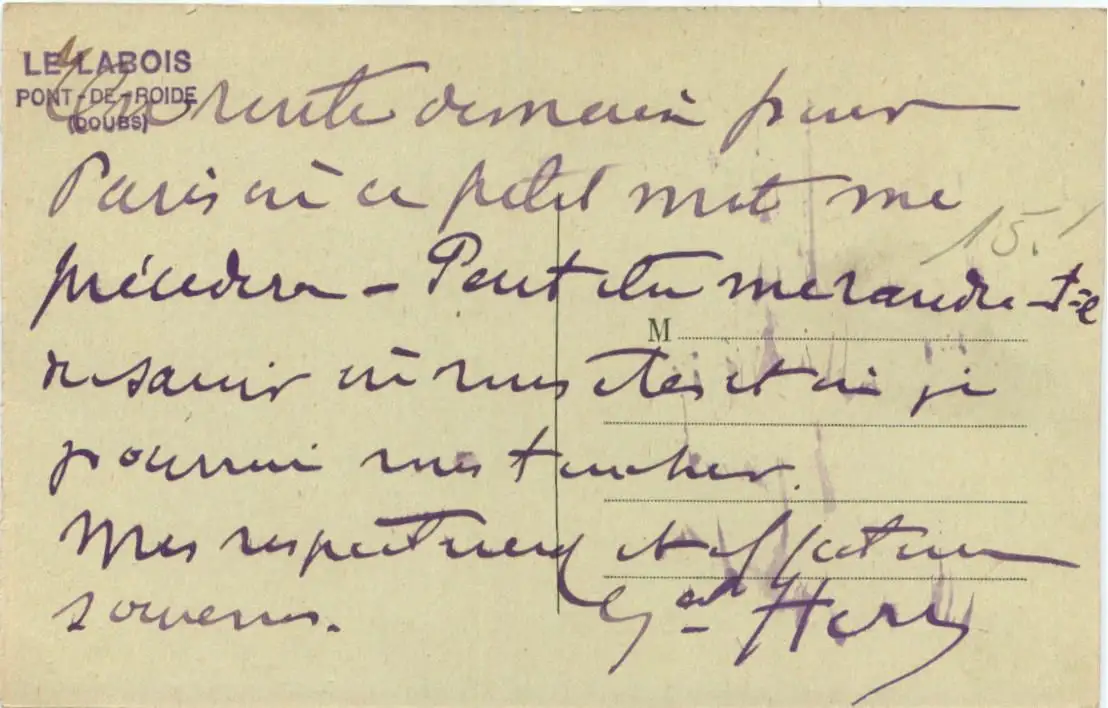 LE LABOIS
PONT-DE-ROIDE
(DOUBS)
En route demain pour
Paris où ce petit mot me
15.
précédera - Peut être me raudra-t-e
M
de savoir où vous êtes et où je
pourrai vous toucher.
Mes respectueux et affectueux
souvenirs.
Gal